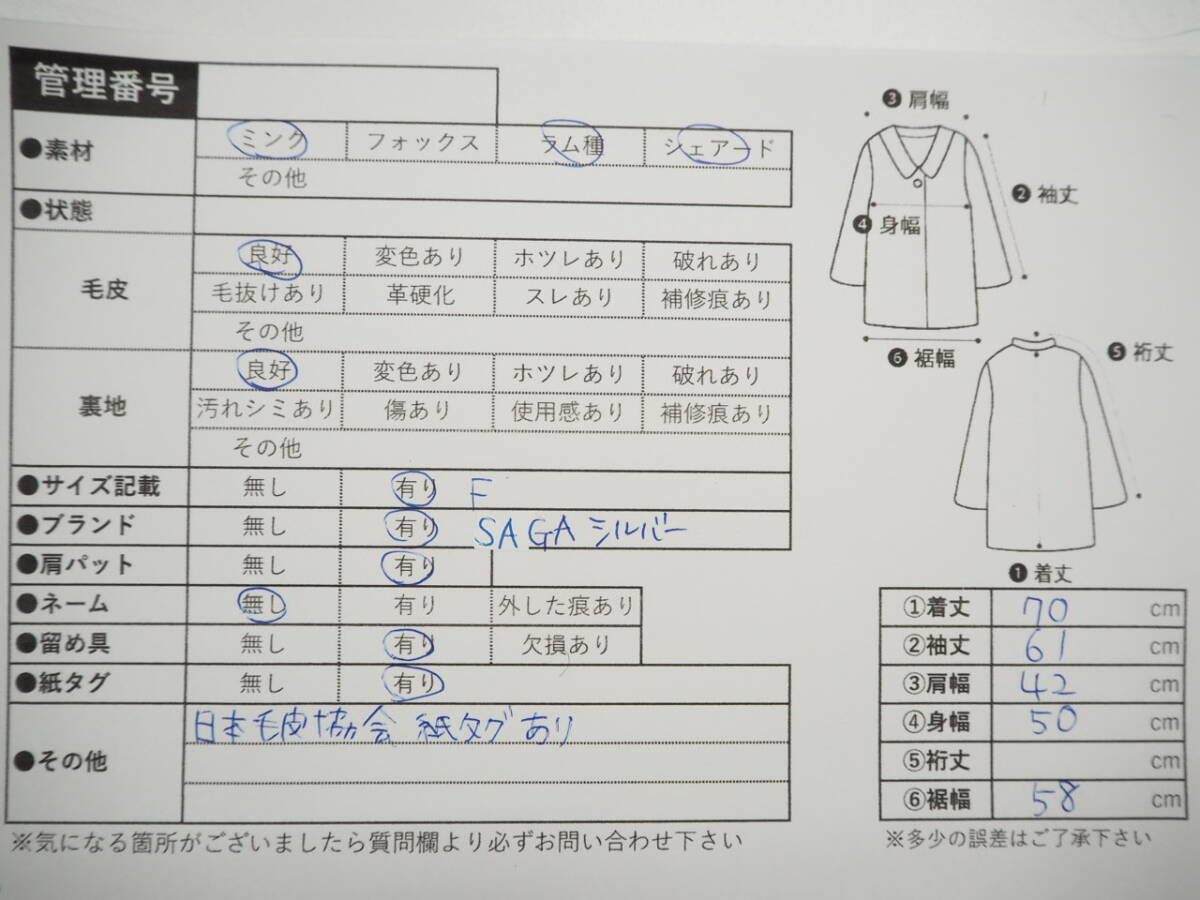 管理番号
●素材 ミンク フォックス ラム種 シェアード
その他
●状態
毛皮 良好 変色あり ホツレあり 破れあり
毛抜けあり 革硬化 スレあり 補修痕あり
その他
裏地 良好 変色あり ホツレあり 破れあり
汚れシミあり 傷あり 使用感あり 補修痕あり
その他
●サイズ記載 無し 有り F
●ブランド 無し 有り SAGA シルバー
●肩パット 無し 有り
●ネーム 無し 有り 外した痕あり
●留め具 無し 有り 欠損あり
●紙タグ 無し 有り
●その他 日本毛皮協会 紙タグあり
※気になる箇所がございましたら質問欄より必ずお問い合わせ下さい
❸ 肩幅
❷ 袖丈
❹ 身幅
❻ 裾幅
❺ 裄丈
❶ 着丈
①着丈 70 cm
②袖丈 61 cm
③肩幅 42 cm
④身幅 50 cm
⑤裄丈 cm
⑥裾幅 58 cm
※多少の誤差はご了承下さい